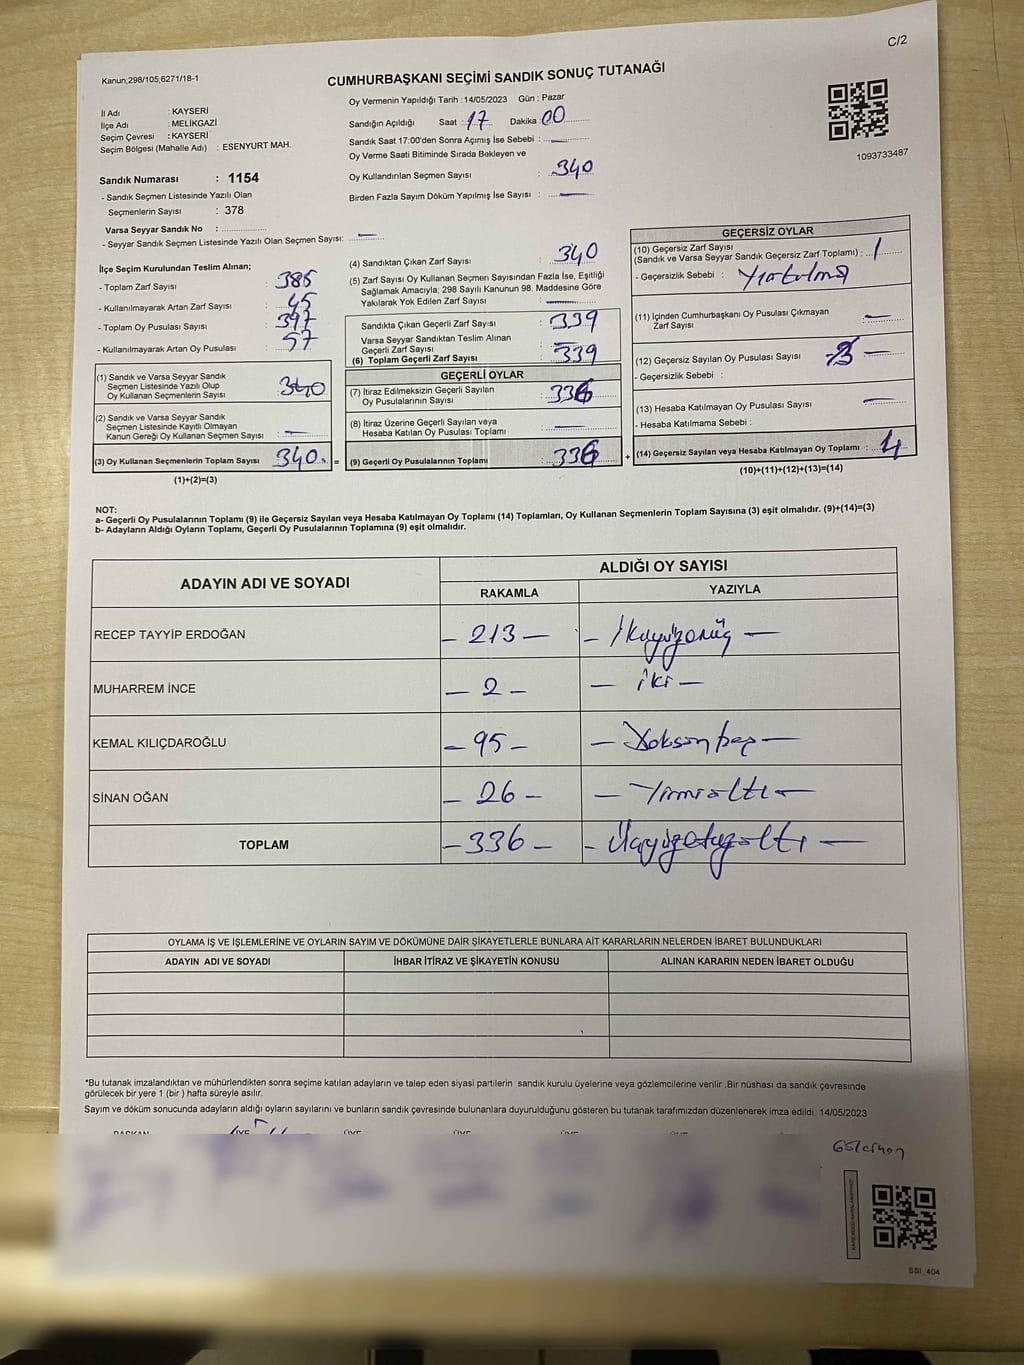 C/2
Kanun,298/105,6271/18-1
CUMHURBAŞKANI SEÇİMİ SANDIK SONUÇ TUTANAĞI
İl Adı : KAYSERİ
İlçe Adı : MELİKGAZİ
Seçim Çevresi : KAYSERİ
Seçim Bölgesi (Mahalle Adı) : ESENYURT MAH.
Oy Vermenin Yapıldığı Tarih : 14/05/2023 Gün : Pazar
Sandığın Açıldığı Saat : 17 Dakika : 00
Sandık Saat 17:00'den Sonra Açımış İse Sebebi :
Oy Verme Saati Bitiminde Sırada Bekleyen ve
Oy Kullandırılan Seçmen Sayısı : 340
Birden Fazla Sayım Döküm Yapılmış İse Sayısı : —
1093733487
Sandık Numarası : 1154
- Sandık Seçmen Listesinde Yazılı Olan
Seçmenlerin Sayısı : 378
Varsa Seyyar Sandık No :
- Seyyar Sandık Seçmen Listesinde Yazılı Olan Seçmen Sayısı: —
İlçe Seçim Kurulundan Teslim Alınan;
- Toplam Zarf Sayısı : 385
- Kullanılmayarak Artan Zarf Sayısı : 45
- Toplam Oy Pusulası Sayısı : 397
- Kullanılmayarak Artan Oy Pusulası : 57
(1) Sandık ve Varsa Seyyar Sandık
Seçmen Listesinde Yazılı Olup
Oy Kullanan Seçmenlerin Sayısı : 340
(2) Sandık ve Varsa Seyyar Sandık
Seçmen Listesinde Kayıtlı Olmayan
Kanun Gereği Oy Kullanan Seçmen Sayısı : —
(3) Oy Kullanan Seçmenlerin Toplam Sayısı : 340 =
(1)+(2)=(3)
(4) Sandıktan Çıkan Zarf Sayısı : 340
(5) Zarf Sayısı Oy Kullanan Seçmen Sayısından Fazla İse, Eşitliği
Sağlamak Amacıyla; 298 Sayılı Kanunun 98. Maddesine Göre
Yakılarak Yok Edilen Zarf Sayısı : —
Sandıkta Çıkan Geçerli Zarf Sayısı : 339
Varsa Seyyar Sandıktan Teslim Alınan
Geçerli Zarf Sayısı : —
(6) Toplam Geçerli Zarf Sayısı : 339
GEÇERLİ OYLAR
(7) İtiraz Edilmeksizin Geçerli Sayılan
Oy Pusulalarının Sayısı : 336
(8) İtiraz Üzerine Geçerli Sayılan veya
Hesaba Katılan Oy Pusulası Toplamı : —
(9) Geçerli Oy Pusulalarının Toplamı : 336 +
GEÇERSİZ OYLAR
(10) Geçersiz Zarf Sayısı
(Sandık ve Varsa Seyyar Sandık Geçersiz Zarf Toplamı) : 1
- Geçersizlik Sebebi : Yırtılma
(11) İçinden Cumhurbaşkanı Oy Pusulası Çıkmayan
Zarf Sayısı : —
(12) Geçersiz Sayılan Oy Pusulası Sayısı : 3 —
- Geçersizlik Sebebi :
(13) Hesaba Katılmayan Oy Pusulası Sayısı : —
- Hesaba Katılmama Sebebi :
(14) Geçersiz Sayılan veya Hesaba Katılmayan Oy Toplamı : 4
(10)+(11)+(12)+(13)=(14)
NOT:
a- Geçerli Oy Pusulalarının Toplamı (9) ile Geçersiz Sayılan veya Hesaba Katılmayan Oy Toplamı (14) Toplamları, Oy Kullanan Seçmenlerin Toplam Sayısına (3) eşit olmalıdır. (9)+(14)=(3)
b- Adayların Aldığı Oyların Toplamı, Geçerli Oy Pusulalarının Toplamına (9) eşit olmalıdır.
ADAYIN ADI VE SOYADI
ALDIĞI OY SAYISI
RAKAMLA YAZIYLA
RECEP TAYYİP ERDOĞAN — 213 — — İkiyüzonüç —
MUHARREM İNCE — 2 — — iki —
KEMAL KILIÇDAROĞLU — 95 — — Doksanbeş —
SİNAN OĞAN — 26 — — Yirmialtı —
TOPLAM — 336 — — Üçyüzotuzaltı —
OYLAMA İŞ VE İŞLEMLERİNE VE OYLARIN SAYIM VE DÖKÜMÜNE DAİR ŞİKAYETLERLE BUNLARA AİT KARARLARIN NELERDEN İBARET BULUNDUKLARI
ADAYIN ADI VE SOYADI İHBAR İTİRAZ VE ŞİKAYETİN KONUSU ALINAN KARARIN NEDEN İBARET OLDUĞU
*Bu tutanak imzalandıktan ve mühürlendikten sonra seçime katılan adayların ve talep eden siyasi partilerin sandık kurulu üyelerine veya gözlemcilerine verilir .Bir nüshası da sandık çevresinde
görülecek bir yere 1 (bir ) hafta süreyle asılır.
Sayım ve döküm sonucunda adayların aldığı oyların sayılarını ve bunların sandık çevresinde bulunanlara duyurulduğunu gösteren bu tutanak tarafımızdan düzenlenerek imza edildi. 14/05/2023
BAŞKAN ÜYE ÜYE ÜYE ÜYE
SSI_404